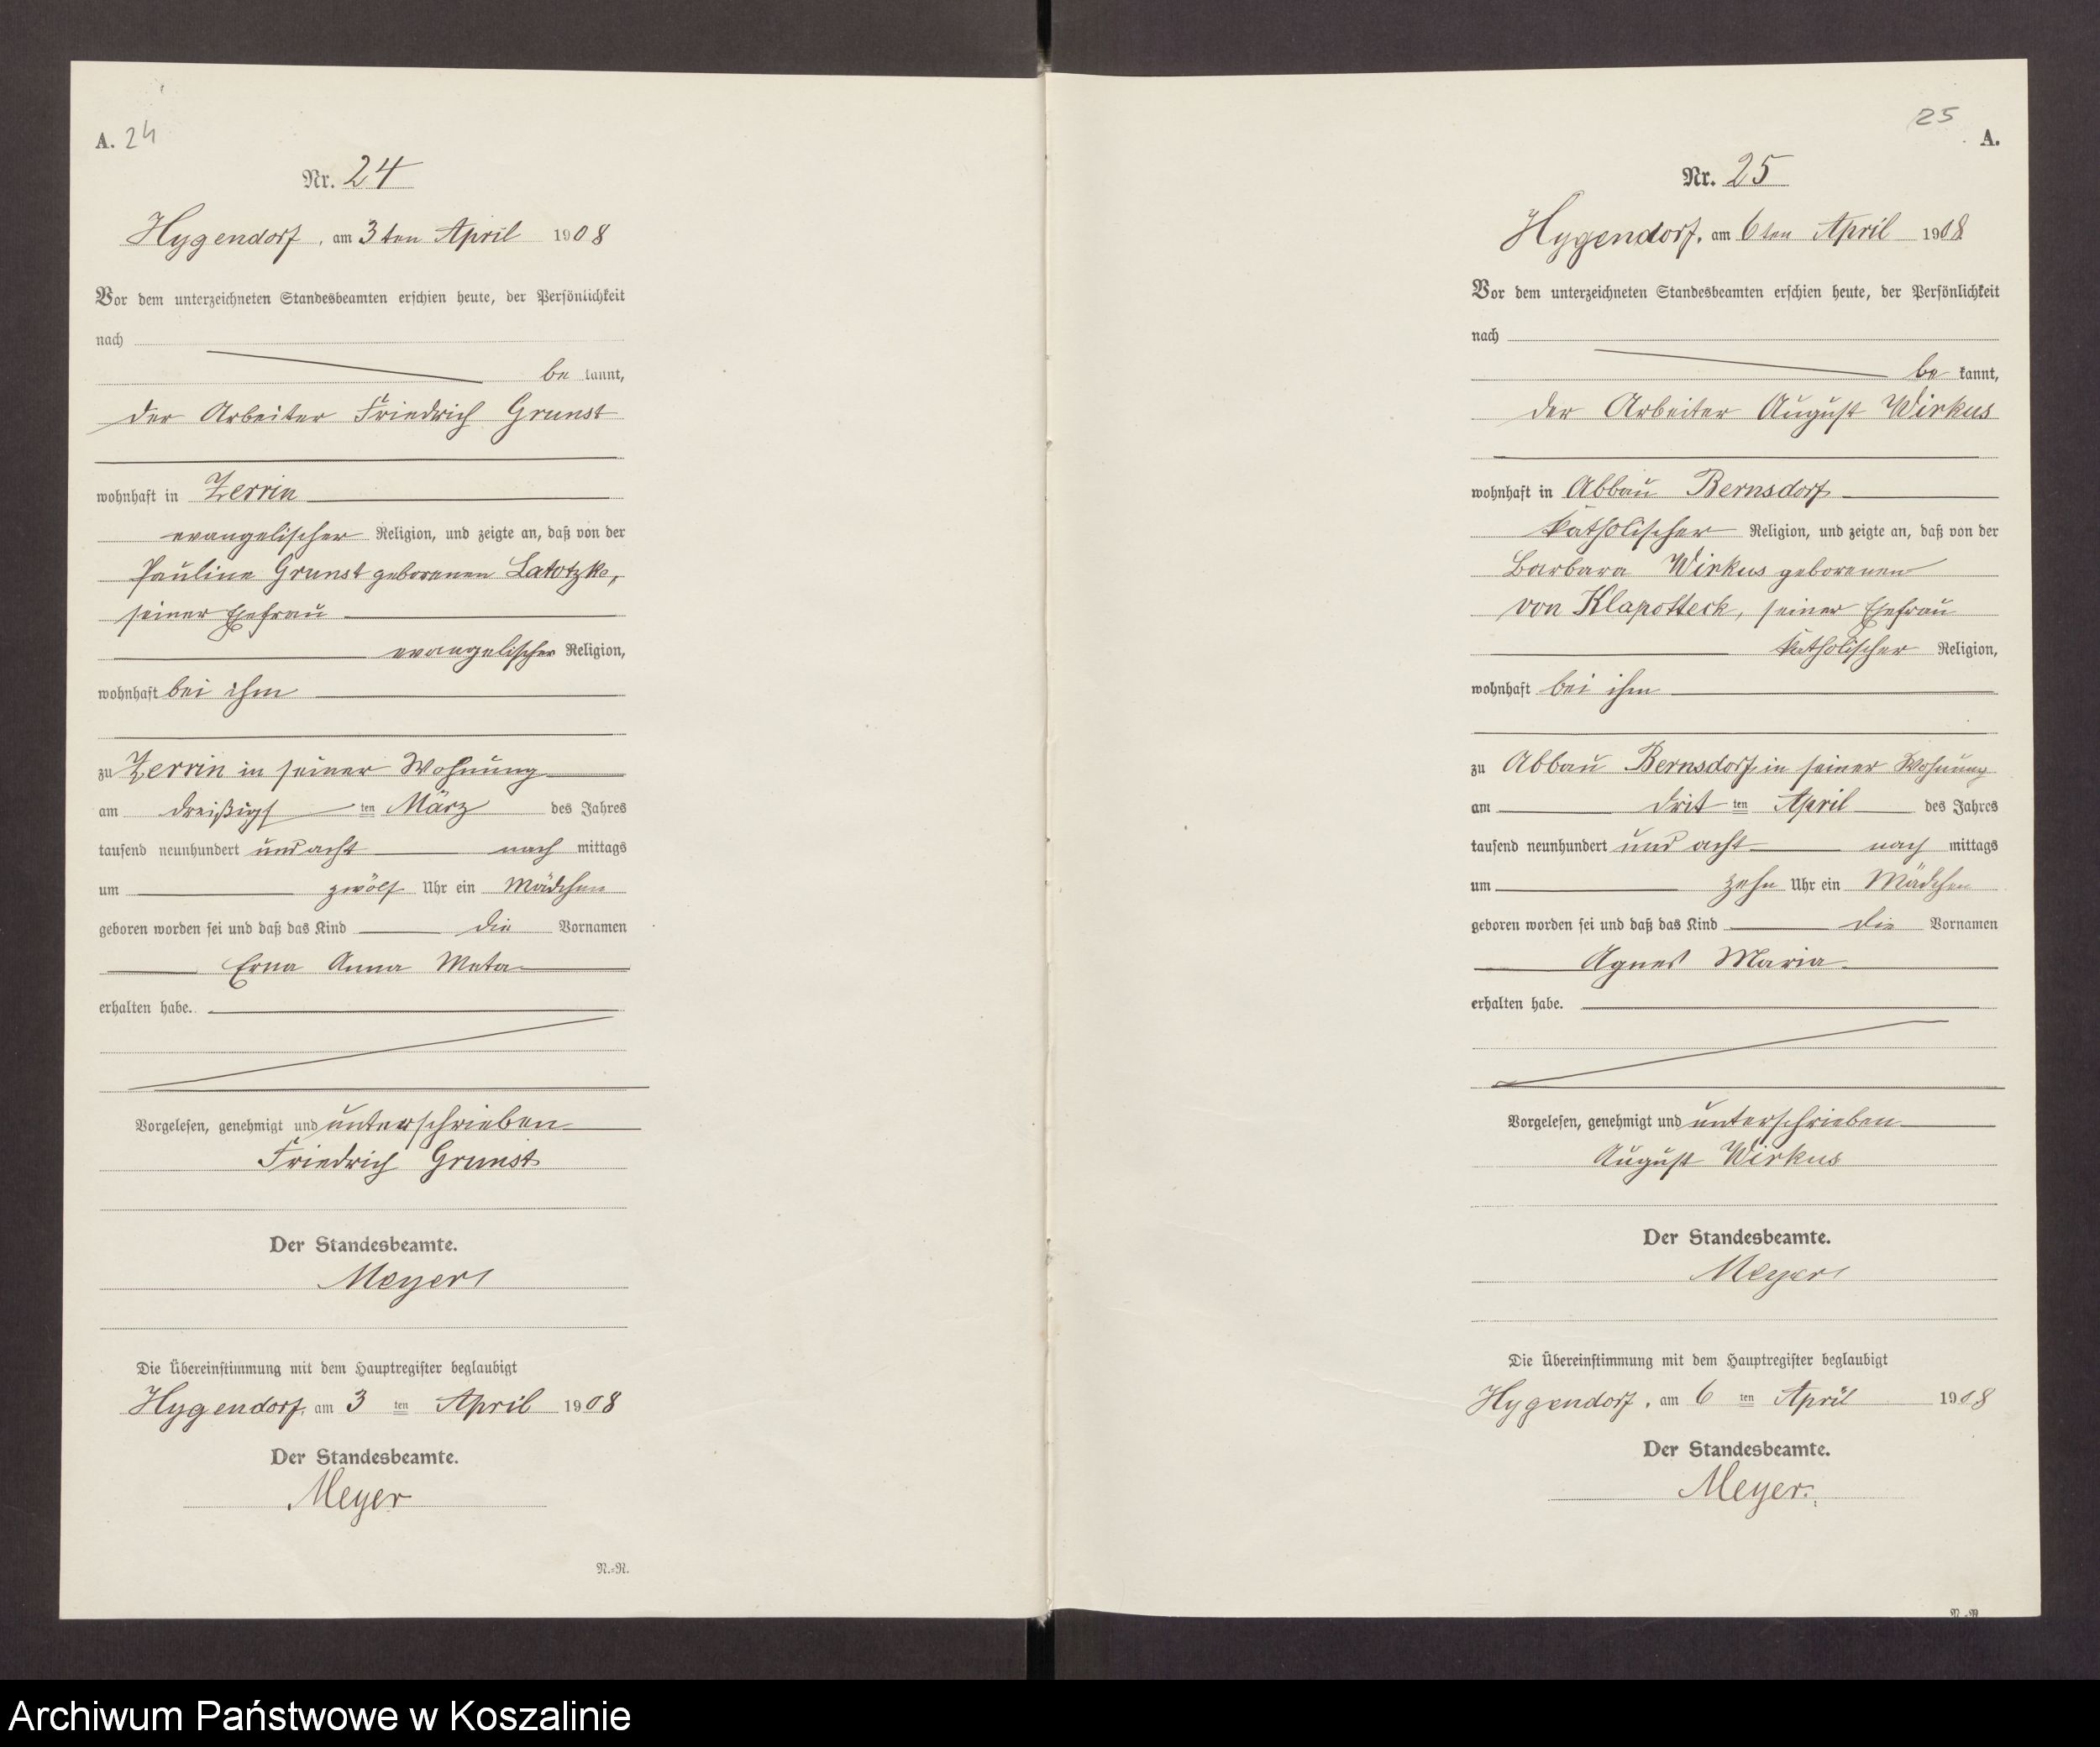 A. 24
Nr. 24
Hygendorf, am 3ten April 1908
Vor dem unterzeichneten Standesbeamten erschien heute, der Persönlichkeit
nach
be kannt,
der Arbeiter Friedrich Grunst
wohnhaft in Zerrin
evangelischer Religion, und zeigte an, daß von der
Pauline Grunst geborenen Latotzke,
seiner Ehefrau
evangelischer Religion,
wohnhaft bei ihm
zu Zerrin in seiner Wohnung
am dreißigst ten März des Jahres
tausend neunhundert und acht nach mittags
um zwölf Uhr ein Mädchen
geboren worden sei und daß das Kind die Vornamen
Erna Anna Meta
erhalten habe.
Vorgelesen, genehmigt und unterschrieben
Friedrich Grunst
Der Standesbeamte.
Meyer
Die Übereinstimmung mit dem Hauptregister beglaubigt
Hygendorf, am 3 ten April 1908
Der Standesbeamte.
Meyer
N.-N.
25
A.
Nr. 25
Hygendorf, am 6ten April 1908
Vor dem unterzeichneten Standesbeamten erschien heute, der Persönlichkeit
nach
be kannt,
der Arbeiter August Wirkus
wohnhaft in Abbau Bernsdorf
katholischer Religion, und zeigte an, daß von der
Barbara Wirkus geborenen
von Klapotteck, seiner Ehefrau
katholischer Religion,
wohnhaft bei ihm
zu Abbau Bernsdorf in seiner Wohnung
am drit ten April des Jahres
tausend neunhundert und acht nach mittags
um zehn Uhr ein Mädchen
geboren worden sei und daß das Kind die Vornamen
Agnes Maria
erhalten habe.
Vorgelesen, genehmigt und unterschrieben
August Wirkus
Der Standesbeamte.
Meyer
Die Übereinstimmung mit dem Hauptregister beglaubigt
Hygendorf, am 6 ten April 1908
Der Standesbeamte.
Meyer.
Archiwum Państwowe w Koszalinie